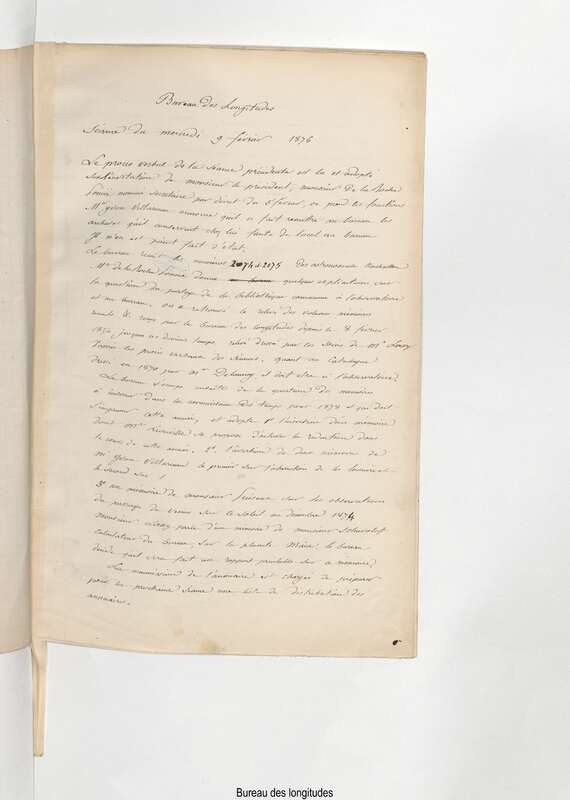 Bureau des Longitudes
Séance du mercredi 9 février 1876
Le procès verbal de la séance précédente est lu et adopté
sur l'invitation de monsieur le président, monsieur De la Roche
Poncié nommé secrétaire par décret du 5 février, en prend les fonctions
Mr Yvon Villarceau annonce qu'il a fait remettre au bureau les
archives qu'il conservait chez lui faute de local au bureau
Il n'en est point fait d'état.
Le bureau reçoit les numéros 2074 et 2075 Des astronomische Nachrichten
Mr de la Roche Poncié donne quelques explications sur
la question du partage de la bibliothèque commune à l'observatoire
et au bureau, on a retrouvé le relevé des volumes mémoires
reçus par le Bureau des longitudes depuis le 8 février
1854 jusqu'au derniers temps, relevé dressé par les soins de Mr Loewy
d'après les procès verbaux des séances, quant au Catalogue
dressé en 1871 par Mr Delaunay, il doit être à l'observatoire.
Le bureau s'occupe ensuite de la question des mémoires
à insérer dans la connaissance des temps pour 1878 et qui doit
s'imprimer cette année, et adopte 1° l'insertion d'un mémoire
dont Mr Liouville se propose d'achever la rédaction dans
le cours de cette année. 2° l'insertion de deux mémoires de
Mr Yvon Villarceau le premier sur l'aberration de la lumière et
le second sur !
3° un mémoire de monsieur Puiseux sur les observations
du passage de Vénus sur le Soleil en décembre 1874
Monsieur Loewy parle d'un mémoire de monsieur Schulhof
calculateur du Bureau, sur la planète Maïa; le bureau
décide qu'il sera fait un rapport préalable sur ce mémoire.
La commission de l'annuaire est chargée de préparer
pour la prochaine séance une liste de distribution des
annuaires.
Bureau des longitudes